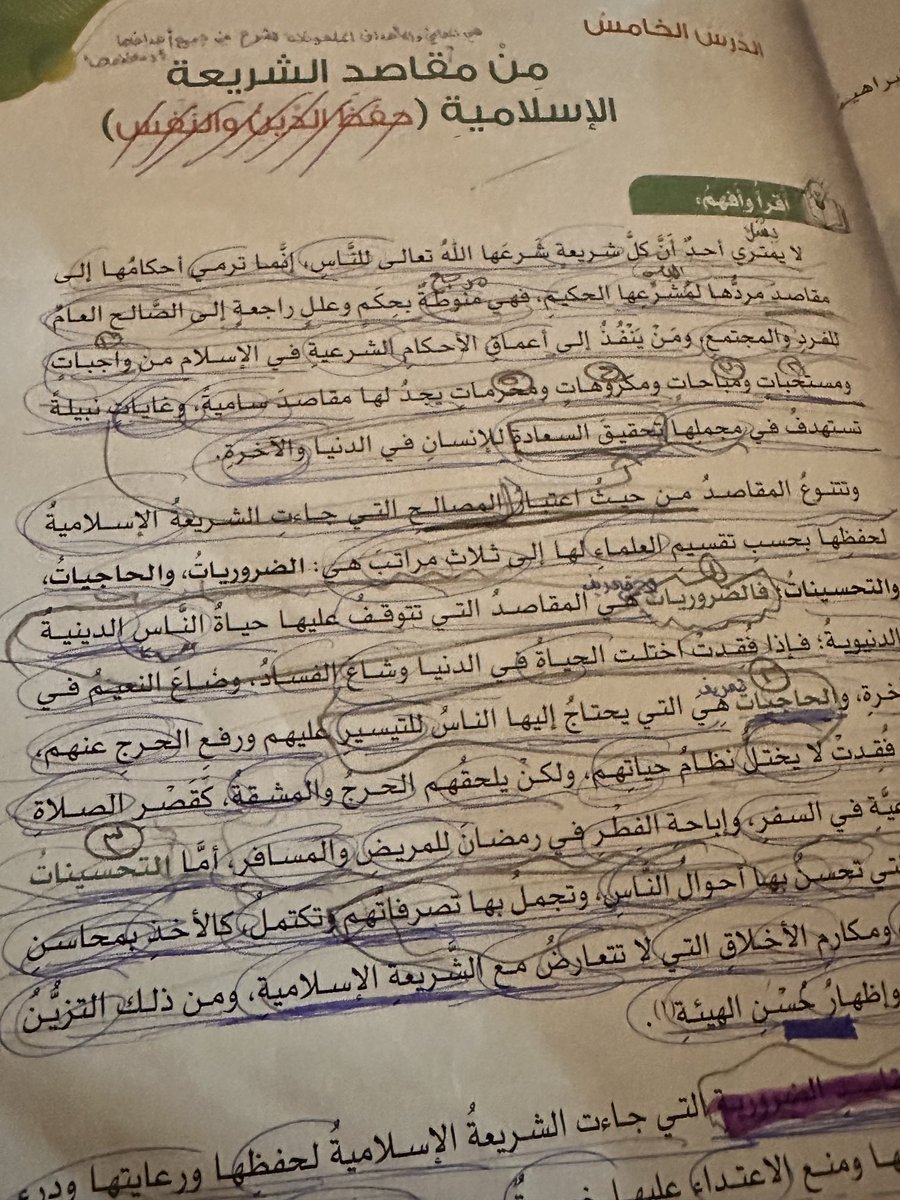 الدرس الخامس
من مقاصد الشريعة
الإسلامية (حفظ الدين والنفس)
أقرأ وأفهم:
يشك
لا يمتري أحدٌ أنَّ كلَّ شريعةٍ شَرعَها اللهُ تعالى للنَّاسِ، إنَّما ترمي أحكامُها إلى
مقاصدَ مردُّها لمُشرِّعِها الحكيمِ، فهي منُوطَةٌ بحِكَمٍ وعللٍ راجعةٍ إلى الصَّالحِ العامِّ
للفردِ والمجتمعِ، ومَنْ يَنْفُذُ إلى أعماقِ الأحكامِ الشرعيةِ في الإسلام من واجباتٍ
ومستحَبَّاتٍ ومُباحاتٍ ومكروُهاتٍ ومحرماتٍ يجدُ لها مقاصدَ ساميةً، وغاياتٍ نبيلةً
تستهدفُ في مجملِها تحقيق السعادةِ للإنسانِ في الدنيا والآخرةِ.
وتتنوعُ المقاصدُ من حيثُ اعتبارُ المصالحِ التي جاءت الشريعةُ الإسلاميةُ
لحفظِها بحسبِ تقسيمِ العلماءِ لها إلى ثلاث مراتبَ هي: الضرورياتُ، والحاجياتُ،
والتحسيناتُ: فالضروريات هي المقاصدُ التي تتوقفُ عليها حياةُ النَّاسِ الدينيةُ
الدنيويةُ؛ فإذا فُقدتْ اختلت الحياةُ في الدنيا وشاعَ الفسادُ، وضَاعَ النعيمُ في
خرةِ، والحاجيَّات هي التي يحتاجُ إليها الناسُ للتيسيرِ عليهم ورفعِ الحرجِ عنهم،
فُقدتْ لا يختلُّ نظامُ حياتِهم، ولكنْ يلحقُهم الحرجُ والمشقةُ، كقَصْرِ الصلاةِ
عيَّة في السفرِ، وإباحةِ الفِطْرِ في رمضانَ للمريضِ والمسافرِ، أمَّا التحسيناتُ
تي تحسنُ بها أحوالُ النَّاسِ، وتجملُ بها تصرفاتُهم وتكتملُ، كالأخذِ بمحاسنِ
ومكارم الأخلاقِ التي لا تتعارضُ مع الشَّريعةِ الإسلاميةِ، ومن ذلك التزيُّنُ
وإظهارُ حُسْنِ الهيئةِ(١).
الضرورية التي جاءت الشريعةُ الإسلاميةُ لحفظِها ورعايتِها ودرءِ
ها ومنع الاعتداءِ عليها